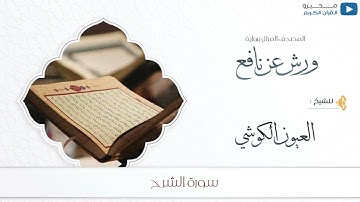 محبرو
القرآن الكريم
المصحف المرتل برواية
ورش عن نافع
للشيخ :
العيون الكوشي
سورة الشرح